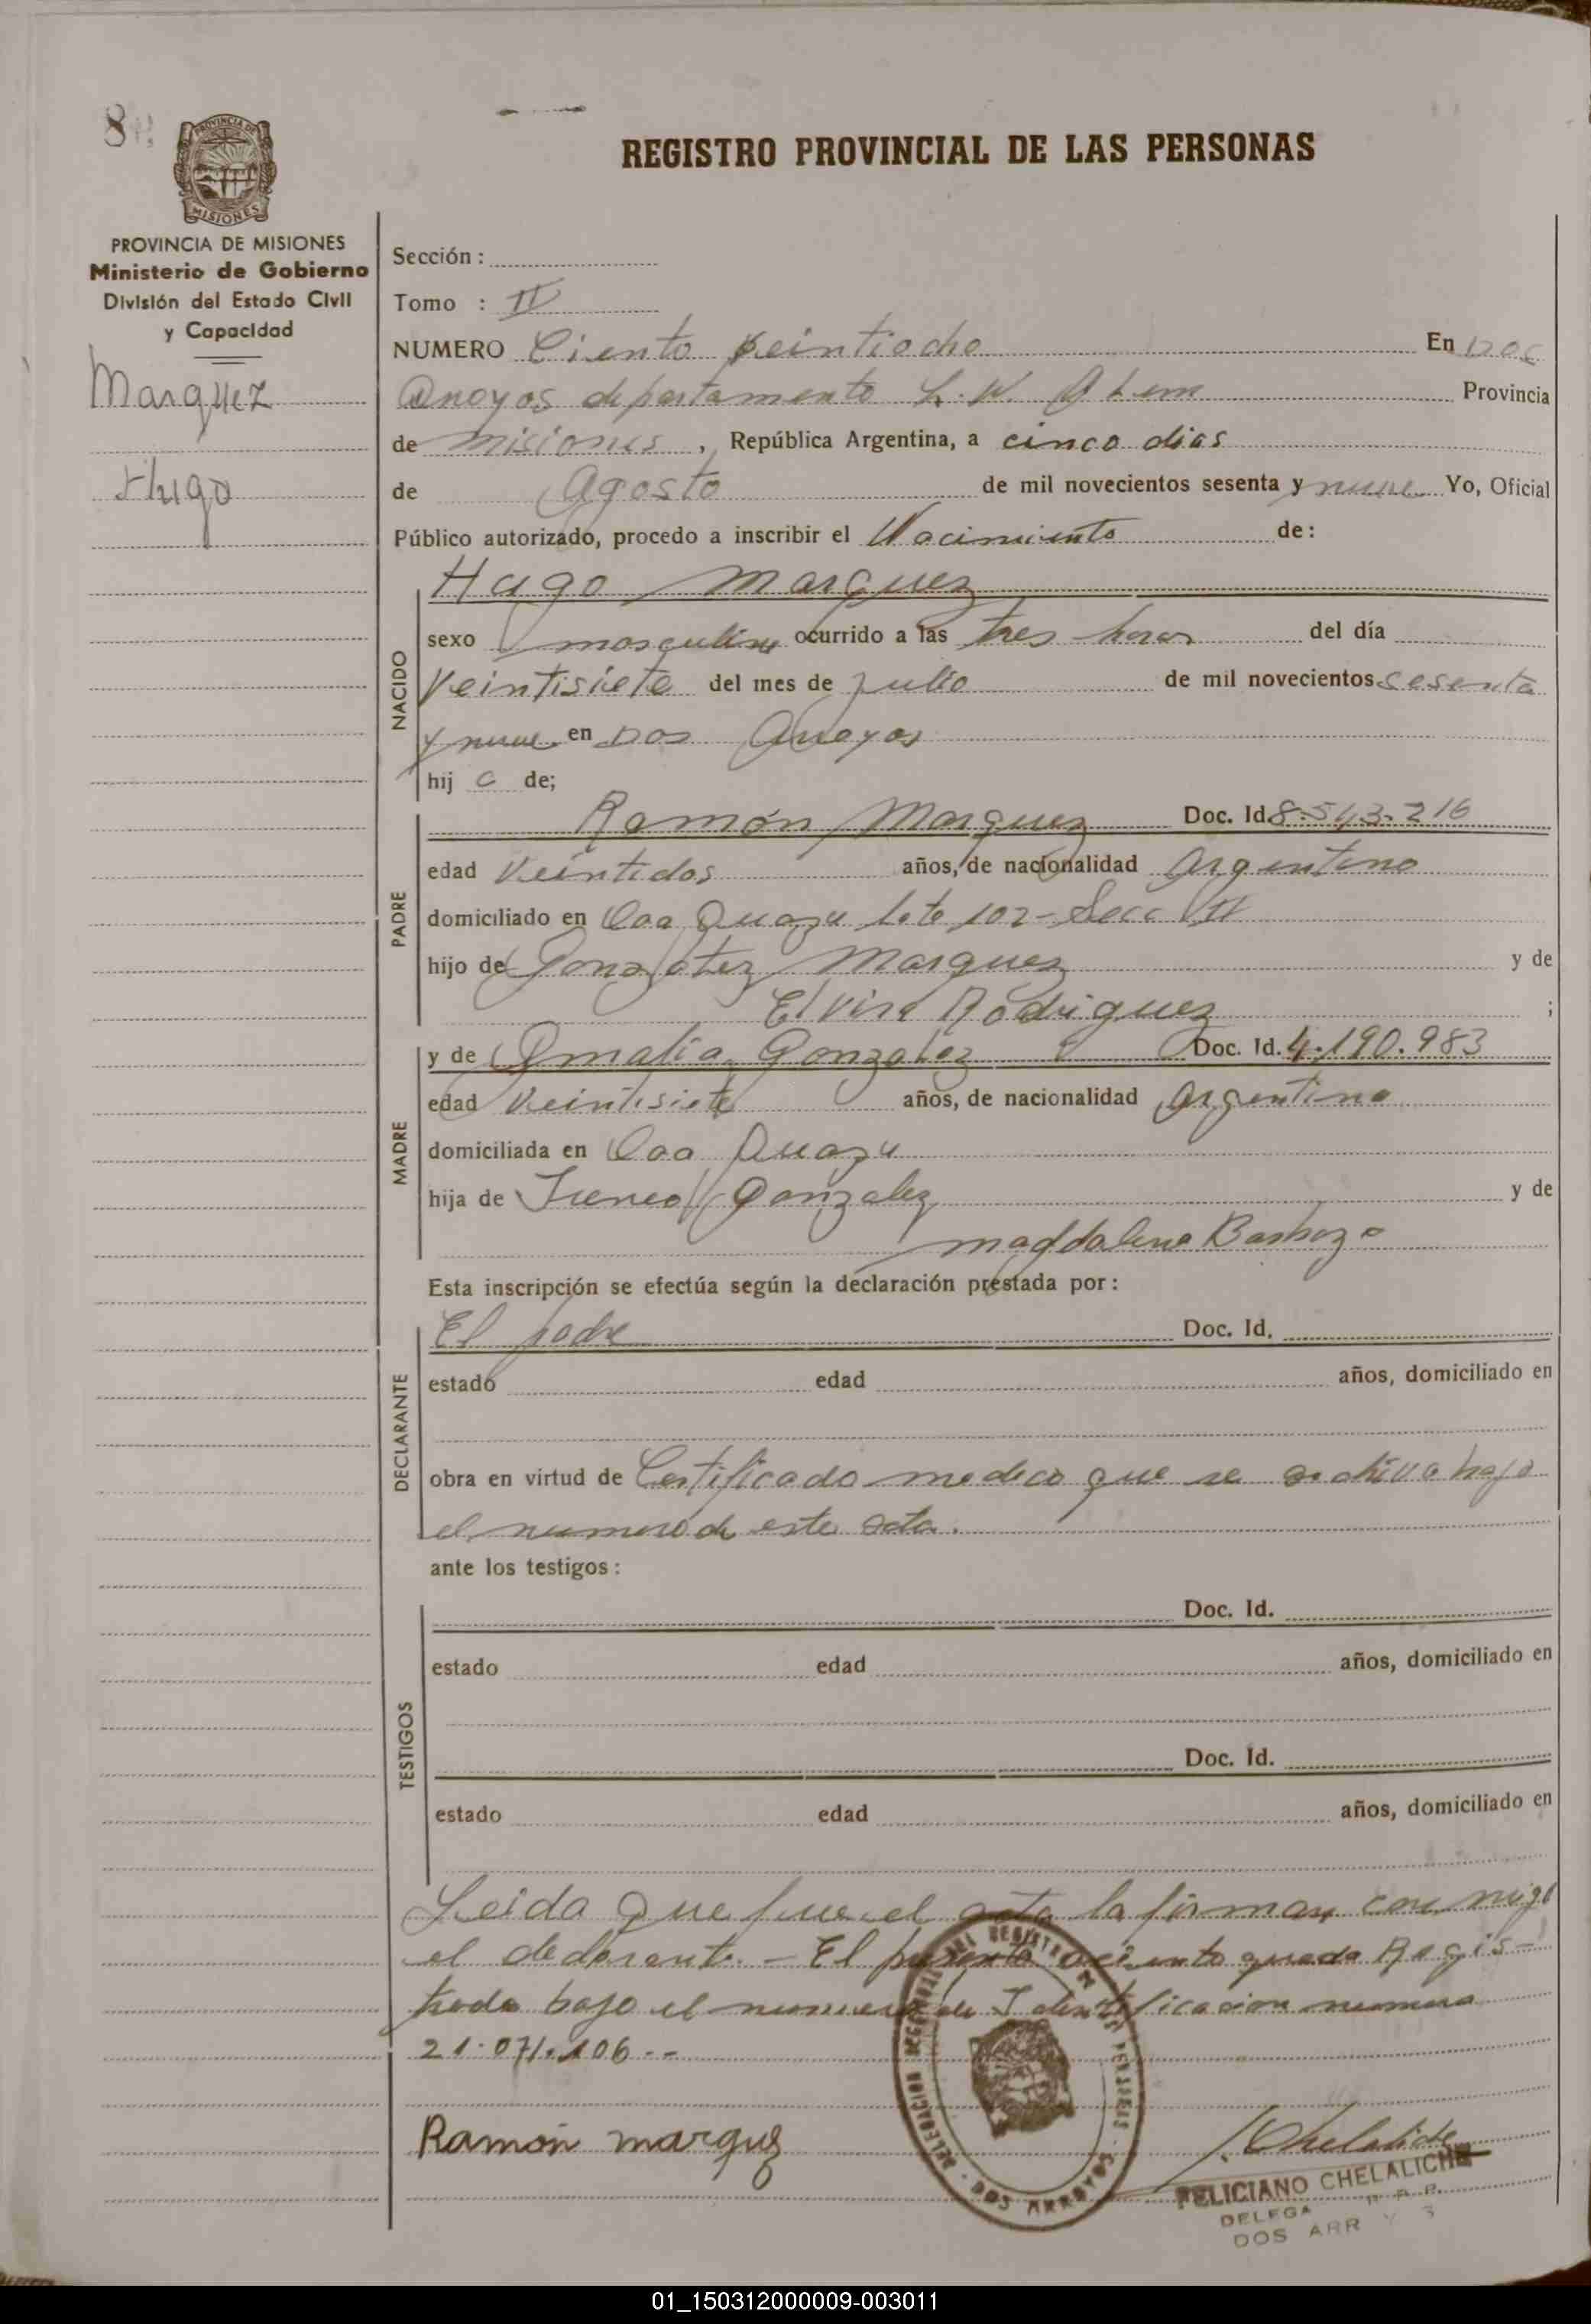 8
PROVINCIA DE
MISIONES
REGISTRO PROVINCIAL DE LAS PERSONAS
PROVINCIA DE MISIONES
Ministerio de Gobierno
División del Estado Civil
y Capacidad
Marquez
Hugo
Sección :
Tomo : IV
NUMERO Ciento veintiocho En Dos
Arroyos departamento L. N. Alem Provincia
de misiones , República Argentina, a cinco dias
de Agosto de mil novecientos sesenta y nueve Yo, Oficial
Público autorizado, procedo a inscribir el Nacimiento de :
NACIDO
Hugo Marquez
sexo masculino ocurrido a las tres horas del día
Veintisiete del mes de Julio de mil novecientos sesenta
y nueve en Dos Arroyos
hij o de;
PADRE
Ramón Marquez Doc. Id 8.543.216
edad Veintidos años, de nacionalidad Argentino
domiciliado en Caa Guazu lote 102 - Secc
hijo de Marquez y de
Elvira Rodriguez ;
MADRE
y de Amalia Gonzalez Doc. Id. 4.190.983
edad Veintisiete años, de nacionalidad Argentina
domiciliada en Caa Guazu
hija de Ireneo Gonzalez y de
magdalena Barboza
Esta inscripción se efectúa según la declaración prestada por :
DECLARANTE
El padre Doc. Id.
estado edad años, domiciliado en
obra en virtud de Certificado medico que se archiva bajo
el numero de este acta.
ante los testigos :
TESTIGOS
Doc. Id.
estado edad años, domiciliado en
Doc. Id.
estado edad años, domiciliado en
Leida que fue el acta la firman con migo
el declarante. - El presente asiento queda Regis-
trado bajo el numero de Identificacion numero
21.071.106.-
Ramón marquez
DELEGACION DEL REGISTRO DE LAS PERSONAS
DOS ARROYOS
F. Chelaliche
FELICIANO CHELALICHE
DELEGA R. P. P.
DOS ARR Y S
01_150312000009-003011